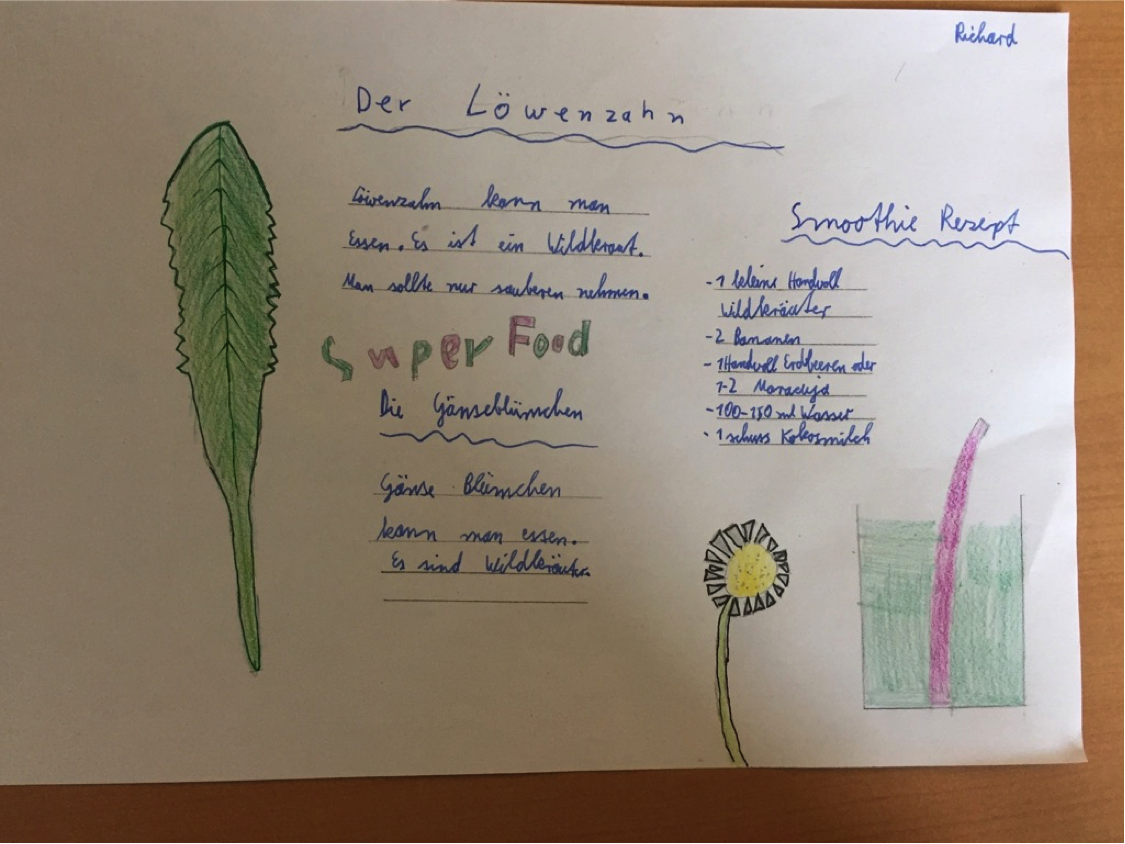 Richard
Der Löwenzahn
Löwenzahn kann man
Essen. Es ist ein Wildkraut.
Man sollte nur sauberen nehmen.
Super Food
Die Gänseblümchen
Gänse Blümchen
kann man essen.
Es sind Wildkräuter
Smoothie Rezept
-1 kleine Handvoll
Wildkräuter
-2 Bananen
-1 Handvoll Erdbeeren oder
1-2 Maracuja
-100-150 ml Wasser
-1 schuss Kokosmilch